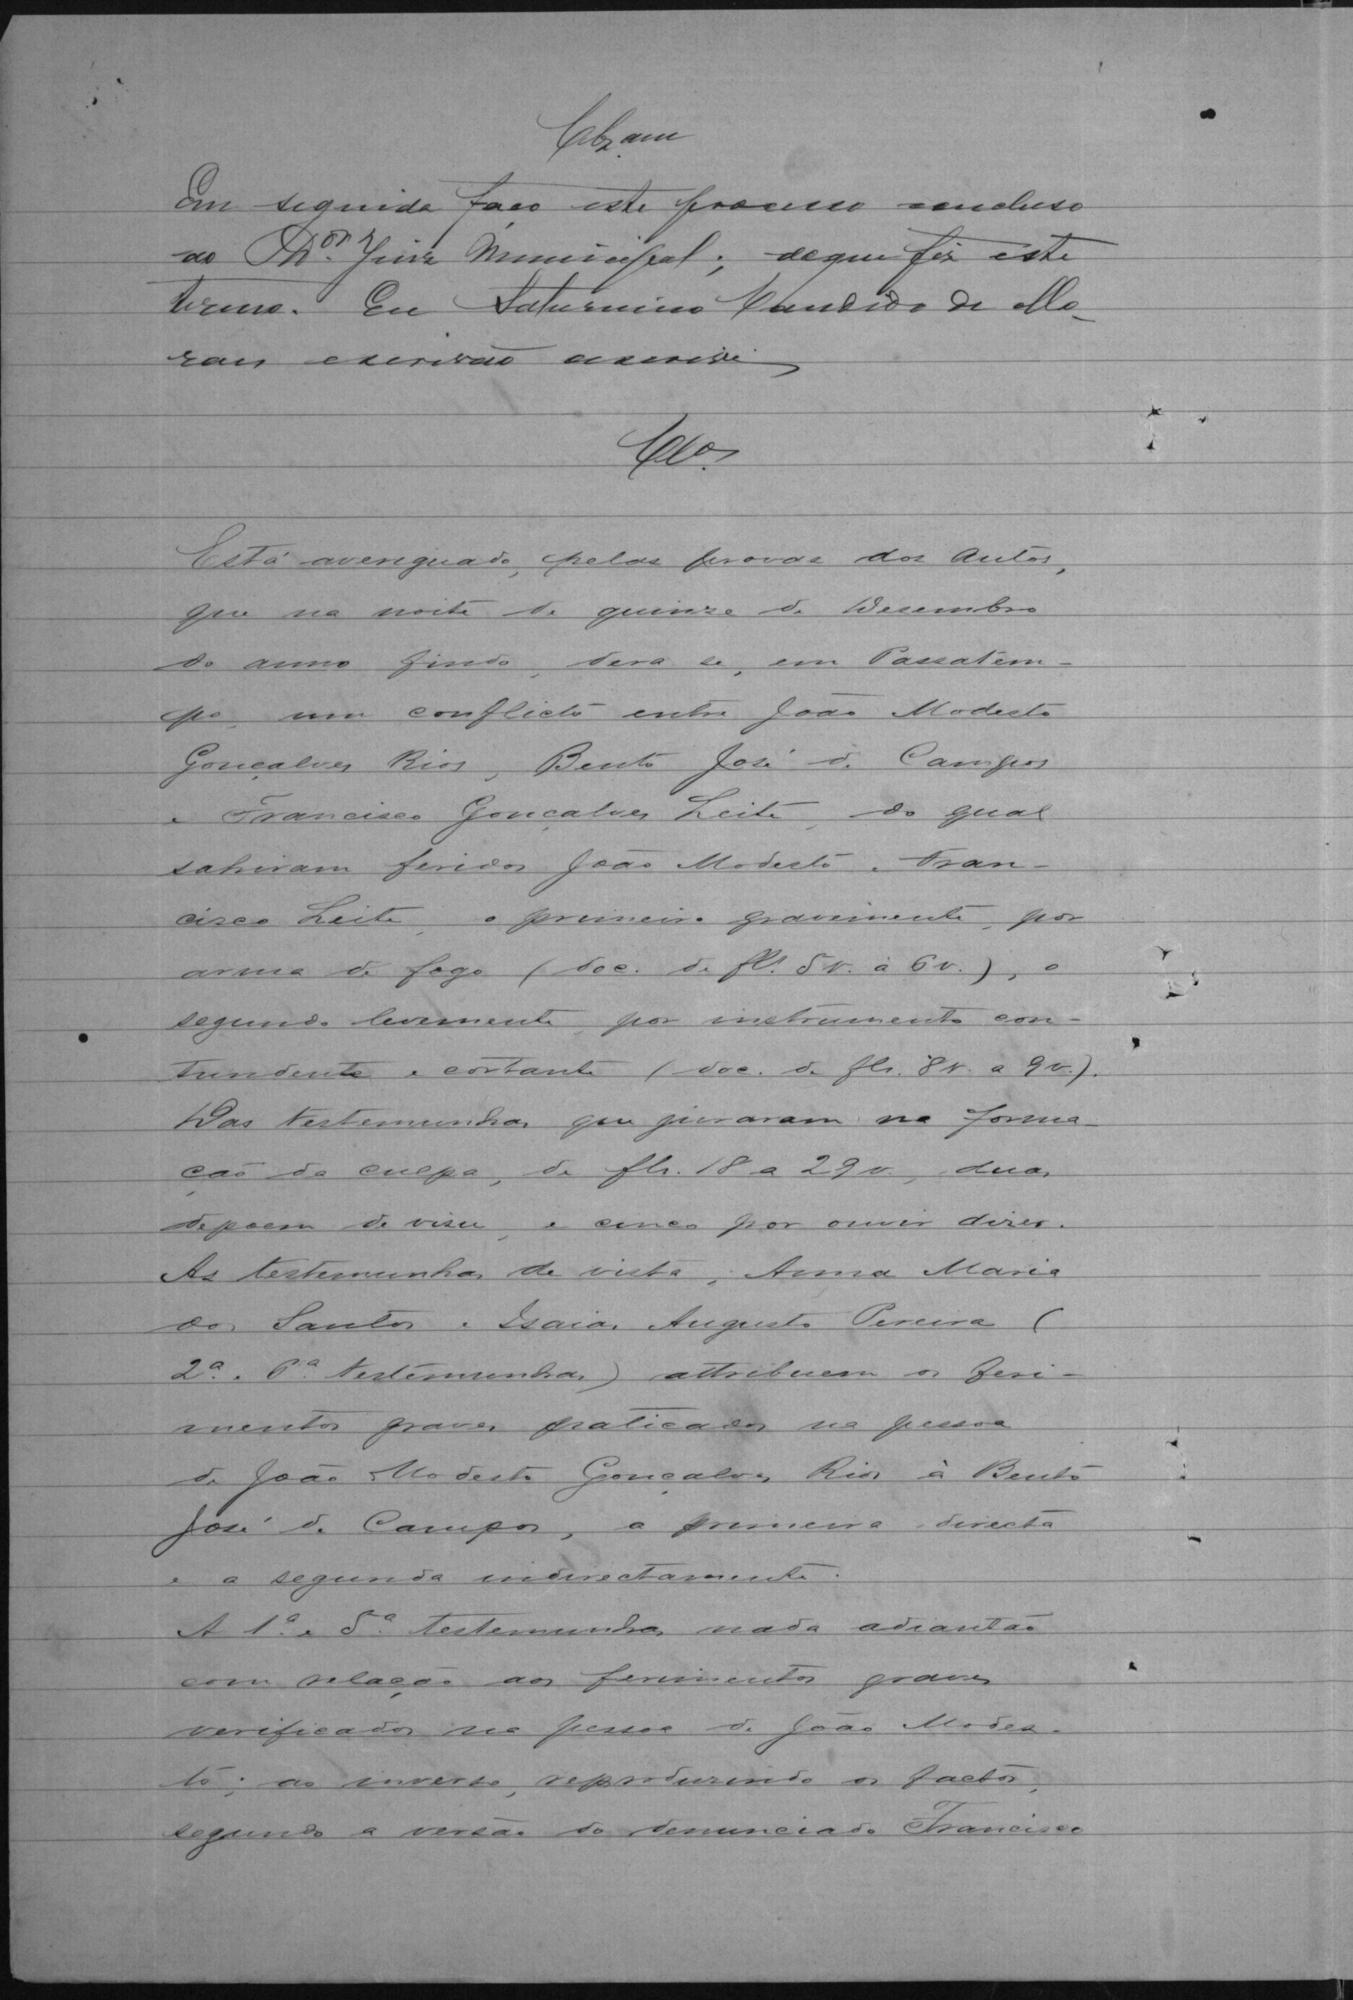 Clzam
Em seguida faço este processo concluso
ao Dr. Juiz Municipal; de que fiz este
termo. Eu Saturnino Candido de Mo-
raes escrivão escrevi
Clos.
Está averiguado, pelas provas dos autos,
que na noite de quinze de Desembro
do anno findo, dera se, em Passatem-
po, um conflicto entre João Modesto
Gonçalves Rios, Bento José de Campos
e Francisco Gonçalves Leite, do qual
sahiram feridos João Modesto e Fran-
cisco Leite, o primeiro gravemente, por
arma de fogo (doc. de fls. 5v. à 6v.), o
segundo levemente, por instrumento con-
tundente e cortante (doc. de fls. 8v. a 9v.).
Das testemunhas que juraram na forma-
ção da culpa, de fls. 18 a 29v., duas
depoem de visu, e cinco por ouvir diser.
As testemunhas de vista, Anna Maria
dos Santos e Isaias Augusto Pereira (
2ª e 6ª testemunhas) attribuem os feri-
mentos graves praticados na pessoa
de João Modesto Gonçalves Rios à Bento
José de Campos, a primeira directa
e a segunda indirectamente.
A 1ª e 5ª testemunhas nada adiantão
com relação aos ferimentos graves
verificados na pessoa de João Modes-
to; ao inverso, reproduzindo os factos,
segundo a versão do denunciado Francisco